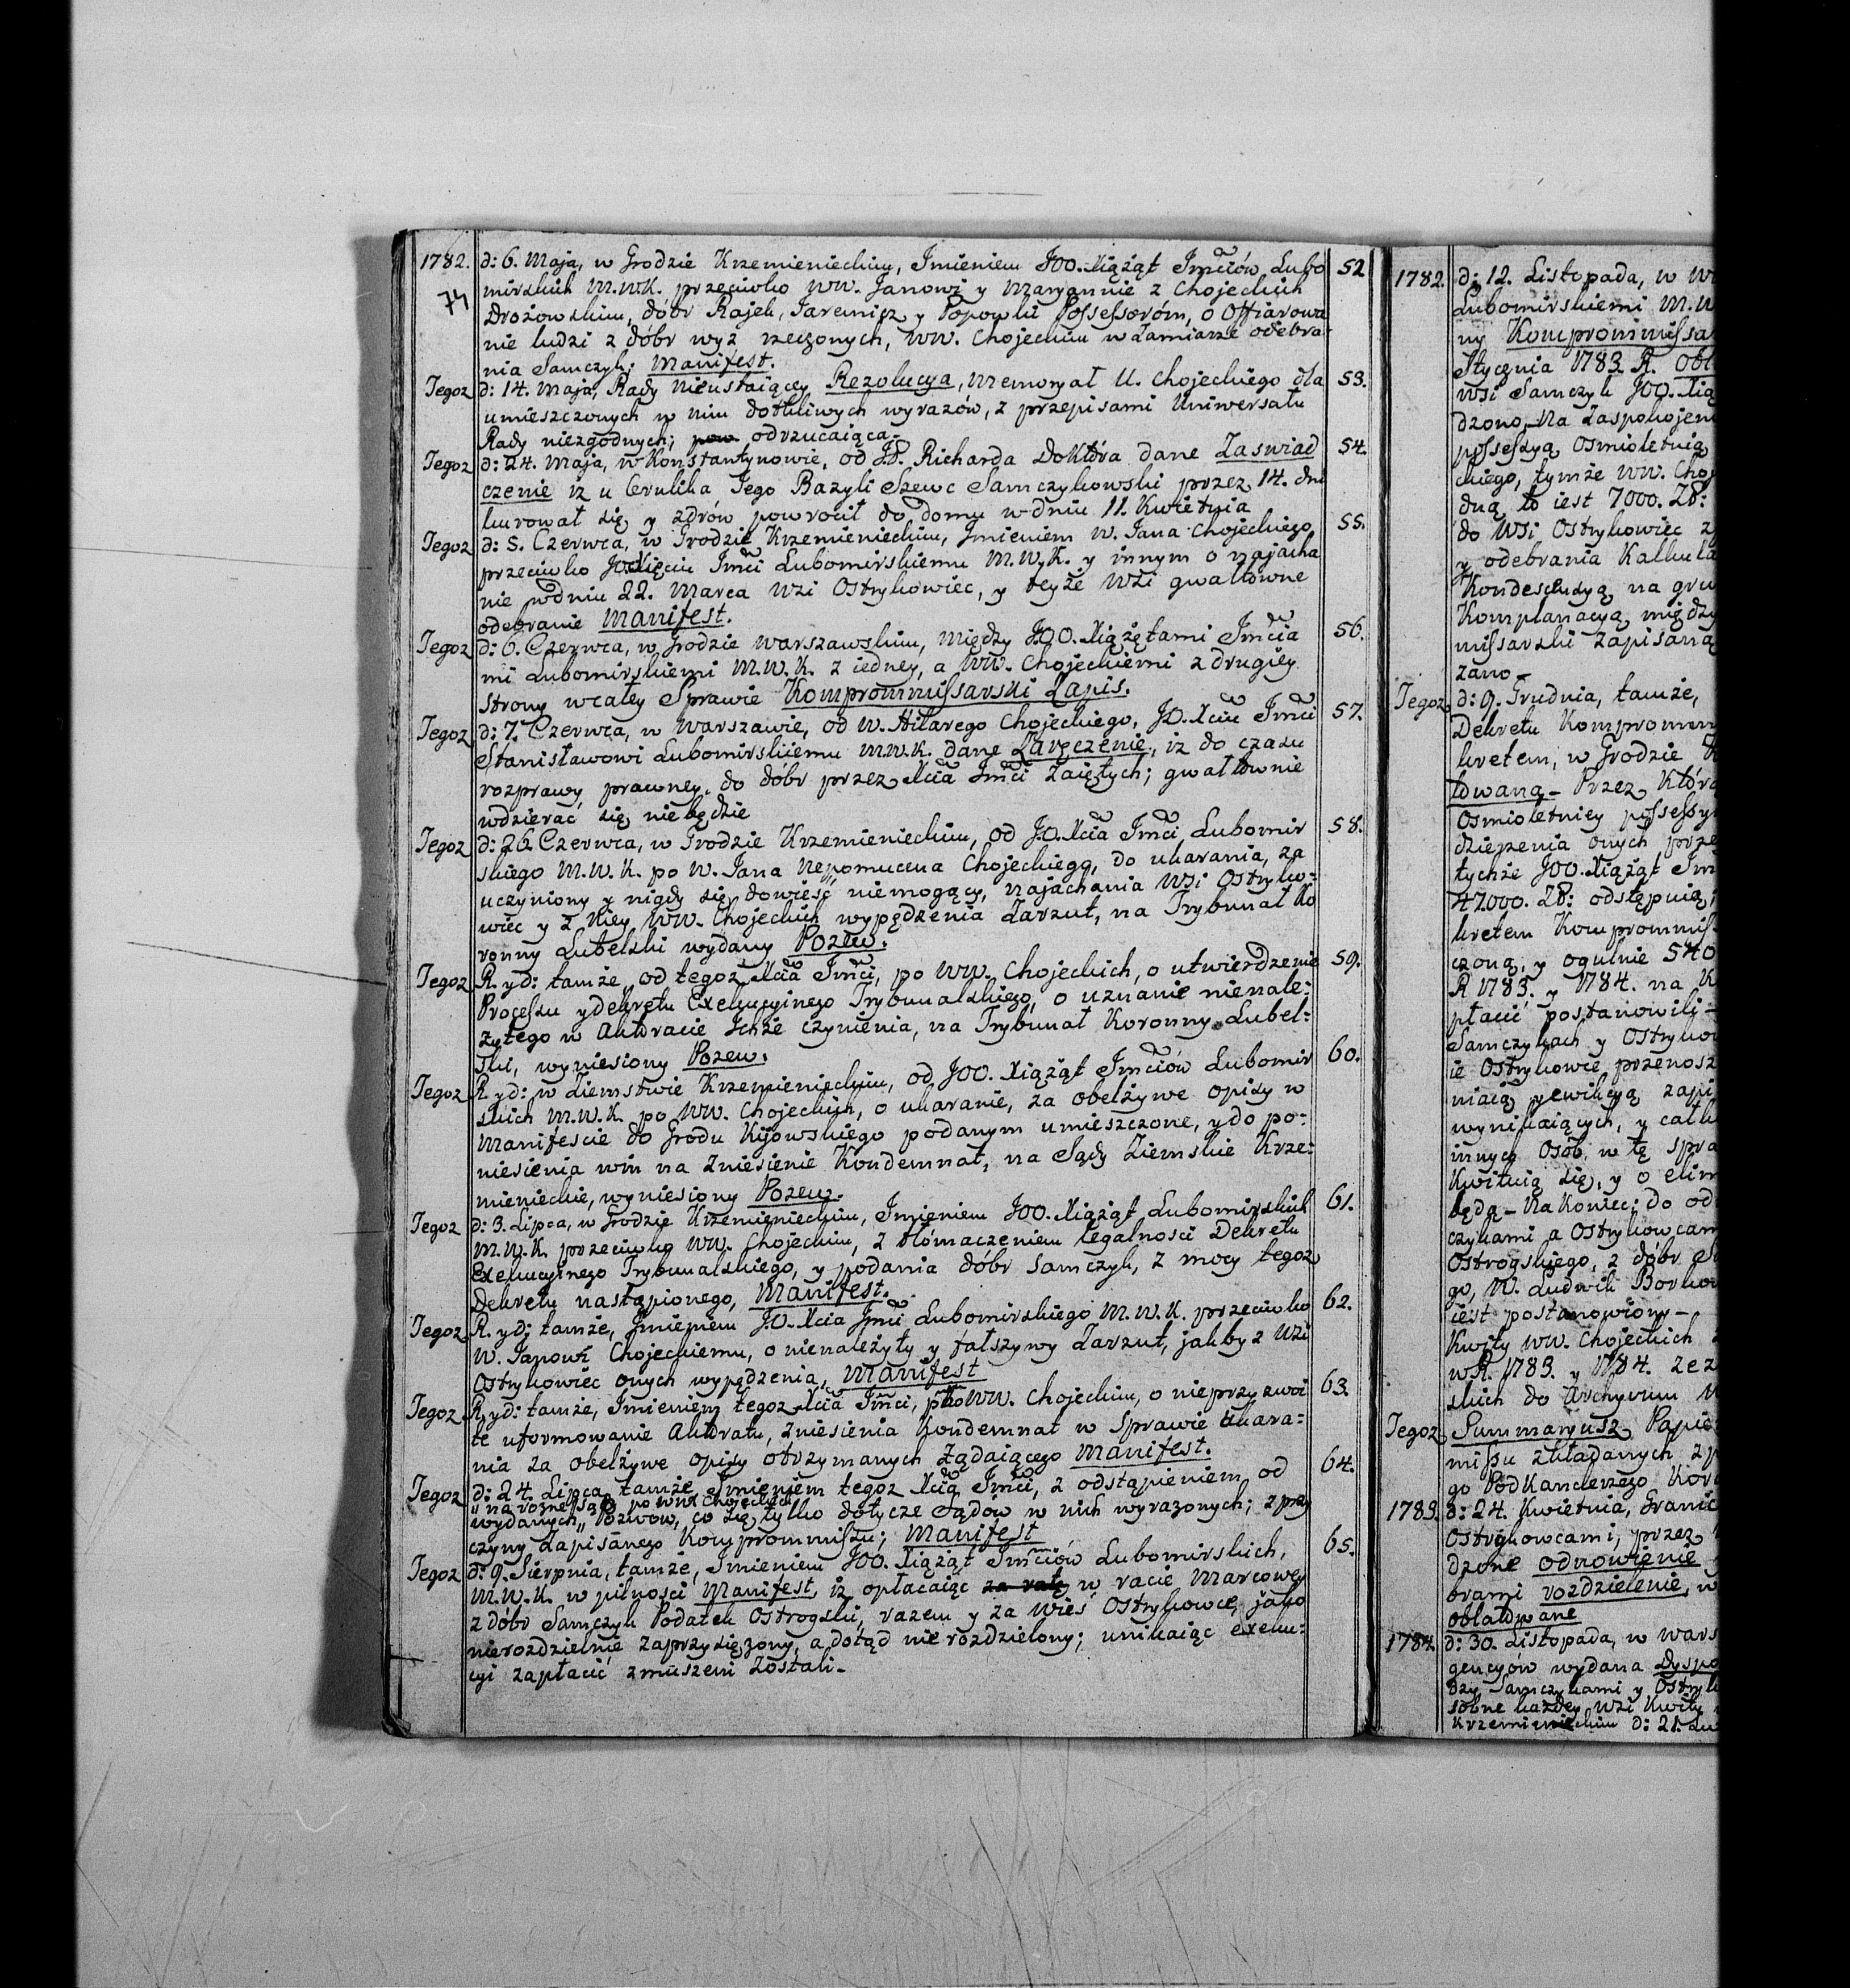 1782. d: 6. Maja, w Grodzie Krzemienieckim, Imieniem JOO. Xiążąt Imciów Lubo 52
mirskich M.W.K. przeciwko WW. Janowi y Maryannie z Chojeckich
74
Drożowskim, dóbr Rajek, Jaremicz y Popowki Possessorom, o Offiarowa
nie ludzi z dóbr wyż rzeczonych, WW. Chojeckim w Zamiarze odebra
nia Samczyk; Manifest.
Tegoz d: 14. Maja, Rady Nieustaiącey Rezolucya, Memoryał U. Chojeckiego dla 53.
umieszczonych w nim dotkliwych wyrazów, z przepisami Uniwersału
Rady niezgodnych; odrzucaiąca.
Tegoz d: 24. Maja, w Konstantynowie, od JP. Richarda Doktóra dane Zaswiad 54.
czenie iż u Cerulika Jego Bazyli Szewc Samczykowski przez 14. dni
kurował się y zdrów powrócił do domu w dniu 11. Kwietnia
Tegoz d: 5. Czerwca, w Grodzie Krzemienieckim, Imieniem W. Jana Chojeckiego 55.
przeciwko JOXięciu Imci Lubomirskiemu M.W.K. y innym o najacha
nie w dniu 22. Marca Wsi Ostrykowiec, y teyże Wsi gwałtowne
odebranie Manifest.
Tegoz d: 6. Czerwca, w Grodzie Warszawskim, między JOO. Xiążętami Imcia 56.
mi Lubomirskiemi M.W.K. z iedney, a WW. Chojeckiemi z drugiey
strony w całey Sprawie Kompromissarski Zapis.
Tegoz d: 7. Czerwca, w Warszawie, od W. Hilarego Chojeckiego, JO. Xciu Imci 57.
Stanisławowi Lubomirskiemu M.W.K. dane Zaręczenie, iż do czasu
rozprawy prawney, do dóbr przez Xcia Imci Zaiętych; gwałtownie
wdzierać się nie będzie
Tegoz d: 26 Czerwca, w Grodzie Krzemienieckim, od JO. Xcia Imci Lubomir 58.
skiego M.W.K. po W. Jana Nepomucena Chojeckiego, do ukarania, za
uczyniony y nigdy się dowieść niemogący, najachania Wsi Ostryko-
wiec y z Niey WW. Chojeckich wypędzenia Zarzut, na Trybunał Ko
ronny Lubelski wydany Pozew.
Tegoz R. y d: tamże, od tegoż Xcia Imci, po WW. Chojeckich, o utwierdzenie 59.
Processu y dekretu Exekucyinego Trybunalskiego, o uznanie nienale:
żytego w Aktoracie Ichże czynienia, na Trybunał Koronny Lubel:
ski, wyniesiony Pozew.
Tegoz R. y d: w Ziemstwie Krzemienieckim, od JOO. Xiążąt Imciów Lubomir 60.
skich M.W.K. po WW. Chojeckich, o ukaranie, za obelżywe opisy w
Manifescie do Grodu Kijowskiego podanym umieszczone, y do po:
niesienia win na zniesienie Kondemnat, na Sądy Ziemskie Krze:
mienieckie, wyniesiony Pozew.
Tegoz d: 3. Lipca, w Grodzie Krzemienieckim, Imieniem JOO. Xiążąt Lubomirskich 61.
M.W.K. przeciwko WW. Chojeckim, z tłómaczeniem legalności Dekretu
Exekucyinego Trybunalskiego, y podania dóbr Samczyk, z mocy tegoż
Dekretu nastąpionego, Manifest.
Tegoz R. y d: tamże, Imieniem JO. Xcia Imci Lubomirskiego M.W.K. przeciwko 62.
W. Janowi Chojeckiemu, o nienależyty y fałszywy Zarzut, jakby z Wsi
Ostrykowiec onych wypędzenia, Manifest
Tegoz R. y d: tamże, Imieniem tegoż Xcia Imci, pko WW. Chojeckim, o nieprzyzwoi 63.
te uformowanie Aktoratu, zniesienia Kondemnat w Sprawie Ukara:
nia za obelżywe opisy otrzymanych żądaiącego Manifest.
Tegoz d: 24. Lipca tamże, Imieniem tegoż Xcia Imci, z odstąpieniem od 64.
u na różne sądy po WW. Chojeckich
wydanych,, Pozwów, co się tylko dotycze Sądów w nich wyrażonych; z przy
czyny Zapisanego Kompromissu; Manifest
Tegoz d: 9. Sierpnia, tamże, Imieniem JOO. Xiążąt Imciów Lubomirskich, 65.
M.W.K. w pilności Manifest, iż opłacaiąc za ratę w racie Marcowey
z dóbr Samczyk Podatek Ostrogski, razem y za Wieś Ostrykowce, jako
nierozdzielnie zaprzysiężony, a dotąd nie rozdzielony; unikaiąc exeku:
cyi zapłacić zmuszeni Zostali.
1782. d: 12. Listopada, w
Lubomirskiemi M.W
ny Kompromissa
Stycznia 1783 R. Obl
Wsi Samczyk JOO. Xią
dzono, Na Zaspokojeni
possessyą Osmioletnią
ckiego, tymże WW. Choj
dną to iest 7000. Zł:
do Wsi Ostrykowiec
y odebrania Kalkula
Kondescensyą na gru
Komplanacyą między
missarski zapisaną
zano
Tegoz d: 9. Grudnia, tamże,
Dekretu Kompromm
kretem, w Grodzie
towaną - Przez Któr
Osmioletniey possessy
dzierżenia onych prze
tychże JOO. Xiążąt Im
47000. Zł: odstępuią;
kretem Kompromiss
czoną, y ogulnie 540
R 1783. y 1784. na
płacić postanowili -
Samczykach y Ostryko
ie Ostrykowce przenosz
niaią y ewikcyą zapi
wynikaiących, y całk
innych Osób, w tę spra
Kwituią się, y o elim
będą - Na Koniec: do od
czykami a Ostrykowcam
Ostrogskiego, z dóbr
go, W. Ludwik Borko
iest postanowiony -
Kwity WW. Chojeckich
w R. 1783. y 1784. zez
skich do Archyvum
Tegoz Summaryusz Papie
missu składanych z
go Podkanclerzego Koro
1783. d: 24. Kwietnia, Granic
Ostrykowcami, przez
dzone odnowienie
brami rozdzielenie, w
oblatowane
1784. d: 30. Listopada, w Wars
gencyów wydana Dyspo
dzy Samczykami y Ostryk
sobne każdey Wsi Kwity
Krzemienieckim d: 21.